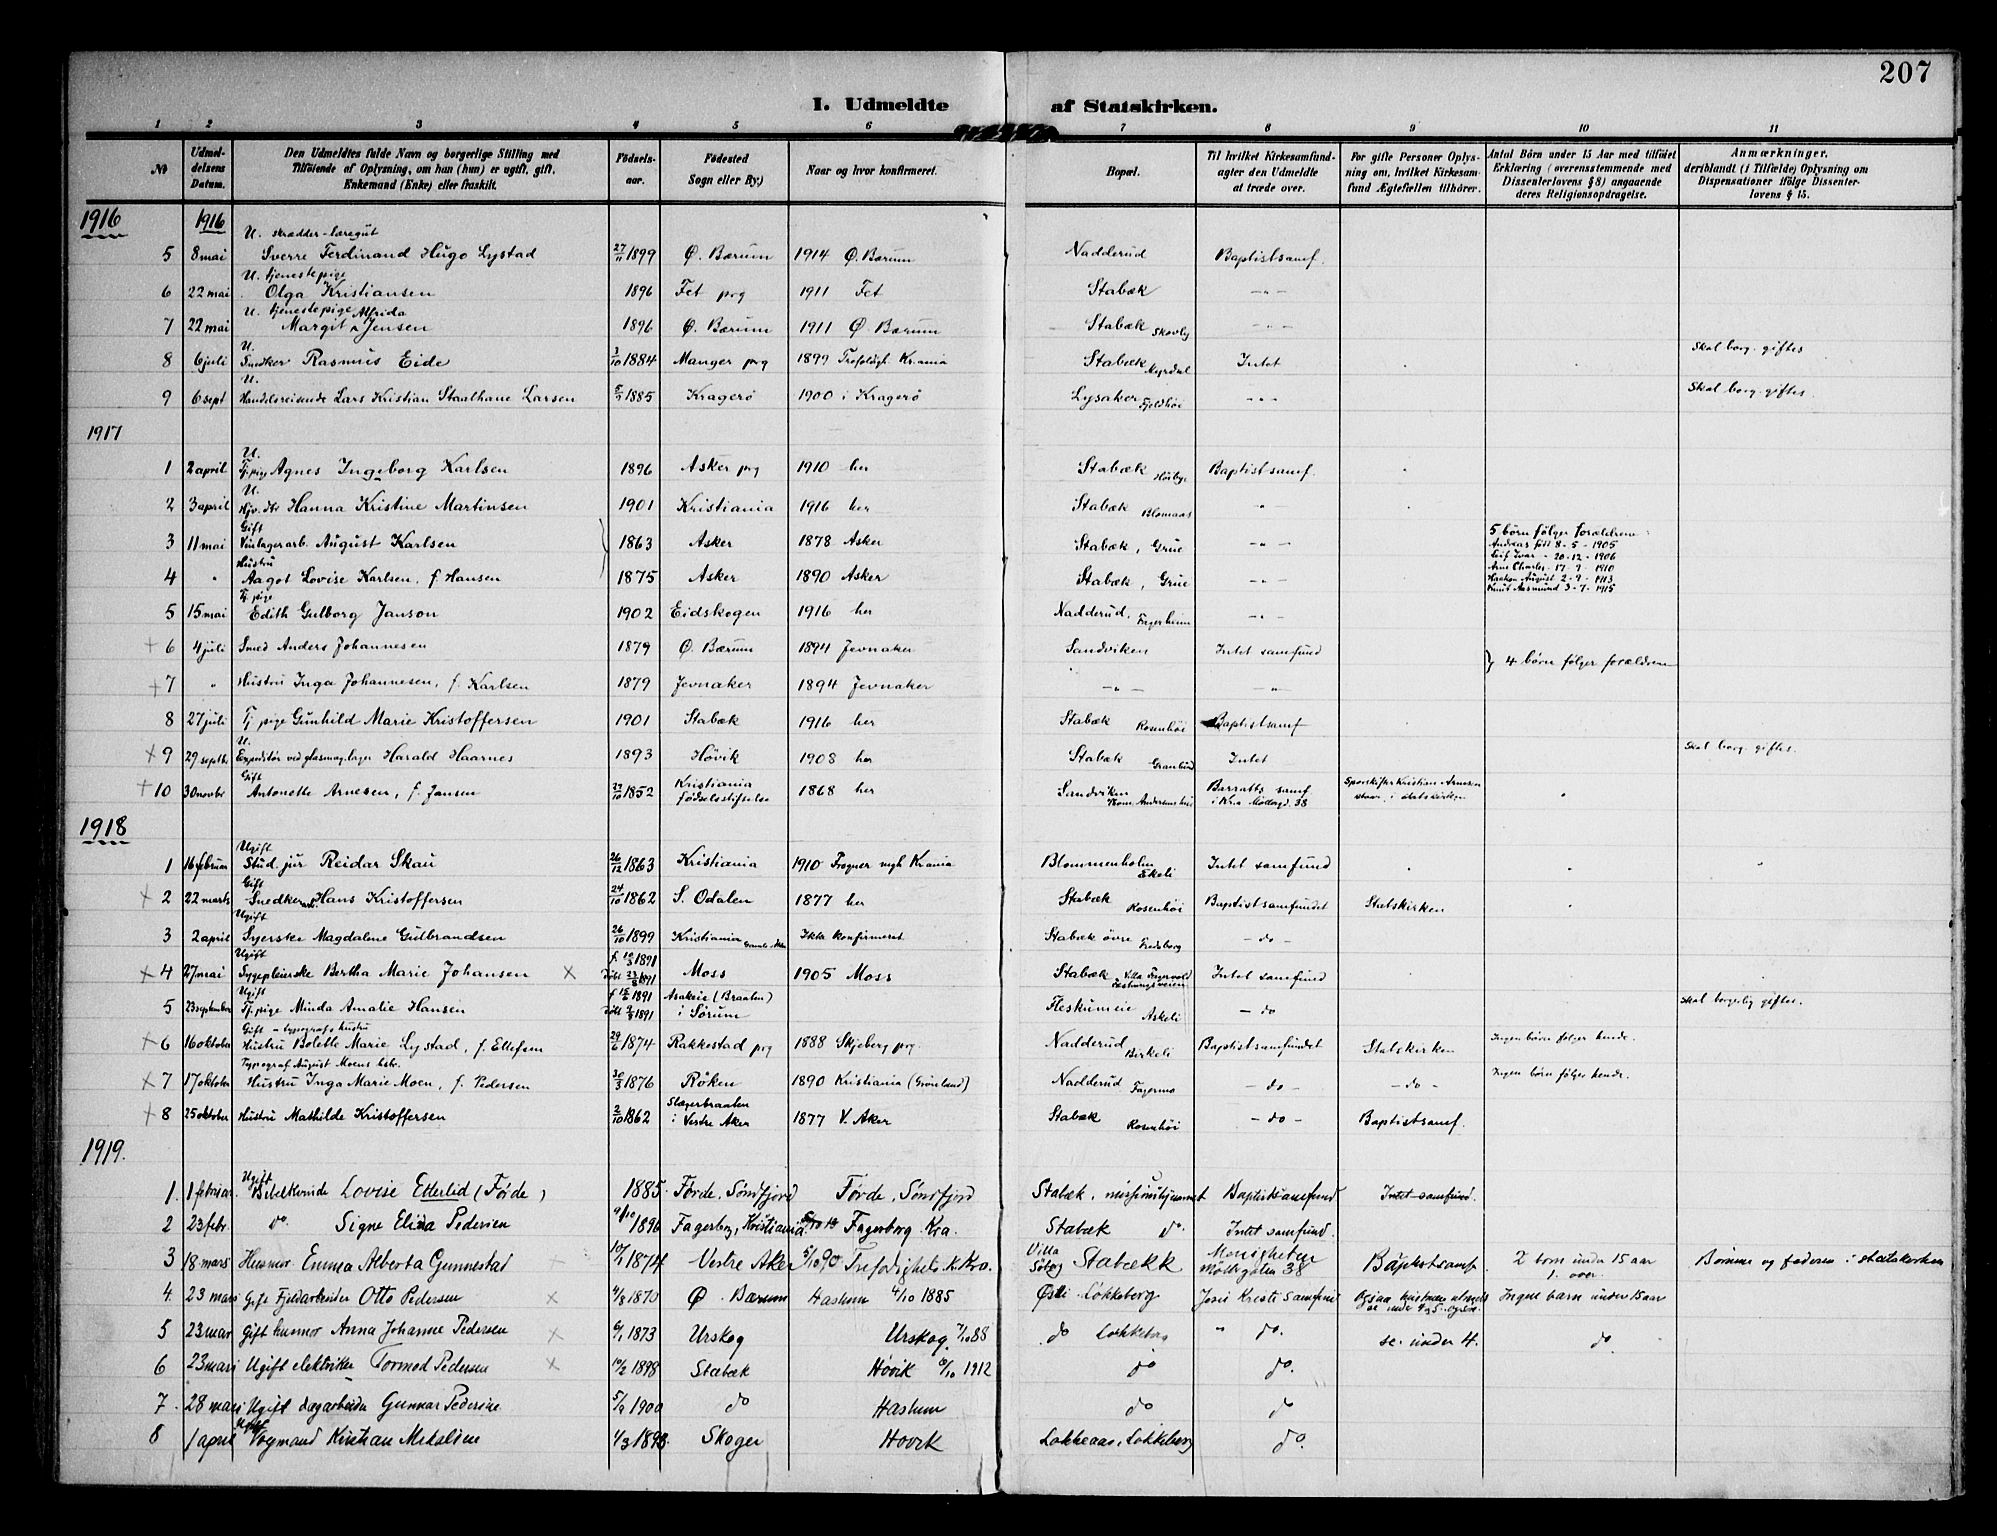 207
I. Udmeldte af Statskirken.
1 2 3 4 5 6 7 8 9 10 11
No
Udmeldelsens Datum.
Den Udmeldtes fulde Navn og borgerlige Stilling med
Tilföiende af Oplysning, om han (hun) er ugift, gift,
Enkemand (Enke) eller fraskilt.
Födsels-
aar.
Födested
Sogn eller By:)
Naar og hvor konfirmeret.
Bopæl.
Til hvilket Kirkesamfund-
agter den Udmeldte
at træde over.
For gifte Personer Oplys-
ning om, hvilket Kirkesam-
fund Ægtefællen tilhörer.
Antal Börn under 15 Aar med tilföiet
Erklæring (overensstemmende med
Dissenterlovens § 8) angaaende
deres Religionsopdragelse.
Anmærkninger,
deriblandt (i Tilfælde) Oplysning om
Dispensationer ifölge Dissenter-
lovens § 15.
1916 1916
U. skrædder-læregut
5 8 mai Sverre Ferdinand Hugo Lystad 27/11 1899 Ø. Bærum 1914 Ø. Bærum Nadderud Baptistsamf.
U. tjenestepige
6 22 mai Olga Kristiansen 1896 Fet prg 1911 Fet Stabæk -"-
U. tjenestepige Alfrida
7 22 mai Margit Jensen 1896 Ø. Bærum 1911 Ø. Bærum Stabæk Skovly -"-
U.
8 6 juli Snedker Rasmus Eide 1884 Manger prg 1899 Trefoldigh. Kr.ania Stabæk Myrdal Intet Skal borg. giftes
U.
9 6 sept Handelsreisende Lars Kristian Staalhane Larsen 1885 Kragerö 1900 i Kragerö Lysaker Fjeldhöi -"- Skal borg. giftes
1917
U.
1 2 april Tj. pig Agnes Ingeborg Karlsen 1896 Asker prg 1910 her Stabæk Baptistsamf.
U.
2 3 april Hanna Kristine Martinsen 1901 Kristiania 1916 her Stabæk Blomaas -"-
Gift
3 11 mai August Karlsen 1863 Asker 1878 Asker Stabæk, Grue -"- 5 börn fölger forældrene:
Andreas född 8-5-1905
Leif Ivar - 20-12-1906
Arne Charles - 17-9-1910
Haakon August 2-9-1913
Knut Aasmund 3-7-1915
Hustru
4 " Aagot Lovise Karlsen, f. Hansen 1875 Asker 1890 Asker Stabæk, Grue -"-
Tj. pige
5 15 mai Edith Gulborg Janson 1902 Eidskogen 1916 her Nadderud, Fagerheim -"-
6 4 juli Smed Anders Johannesen 1879 Ø. Bærum 1894 Jevnaker Sandviken Intet samfund } 4 börn fölger forældrene
7 " Hustru Inga Johannesen, f. Karlsen 1879 Jevnaker 1894 Jevnaker -"- -"-
8 27 juli Tj. pige Gunhild Marie Kristoffersen 1901 Stabæk 1916 her Stabæk Rosenhöi Baptistsamf
U.
9 29 septbr Expeditör ved glasmag. lager Harald Haarnes 1893 Hövik 1908 her Stabæk Granlund Intet Skal borg. giftes.
Gift
10 30 novbr Antonette Arnesen, f. Jansen 1852 Kristiania födselsstiftelse 1868 her Sandviken Barratts samf i Kra Möllergd. 38 Sporskifter Kristian Arnesen staar i statskirken
1918
Ugift
1 16 februar Stud. jur Reidar Skau 26/12 1863 Kristiania 1910 Frogner mgh Krania Blommenholm Ekeli Intet samfund
Gift
2 22 marts Snedkerarb. Hans Kristoffersen 24/10 1862 S. Odalen 1877 her Stabæk Rosenhöi Baptistsamfundet Statskirken
Ugift
3 2 april Syerske Magdalene Gulbrandsen 26/10 1899 Kristiania Gamle Aker Ikke konfirmeret Stabæk övre Fredsborg - do -
Ugift
4 27 mai Sygepleierske Bertha Marie Johansen f 1891 Döbt 1891 Moss 1905 Moss Stabæk Villa Fagervold Festningsveien Intet samfund
Ugift
5 23 september Tj. pige Minda Amalie Hansen f 1891 Döbt 1891 Asakeie (Braaten) i Sörum Fleskumeie Askeli - do Skal borgerlig giftes.
Gift - typografs hustru
6 16 oktober Hustru Bolette Marie Lystad, f. Ellefsen 29/6 1874 Rakkestad prg 1888 Skjeberg prg. Nadderud Birkeli Baptistsamfundet Statskirken Ingen börn fölger hende.
Typograf August Moens hstr.
7 17 oktober Hustru Inga Marie Moen, f. Pedersen 30/3 1876 Röken 1890 Kristiania (Grönland) Nadderud Fagermo - do - - do - Ingen börn fölger hende.
8 25 oktober Hustru Mathilde Kristoffersen 2/10 1862 Slagerbraaten i Vestre Aker 1877 V. Aker Stabæk Rosenhöi - do - Baptistsamf.
1919.
Ugift
1. 1 februar. Bibelkvinde Lovise Etterlid (Førde) 1885. Førde, Söndfjord Førde, Söndfjord Stabæk, Baptistsamfund Intet samfund.
2 23 febr. do. Signe Elina Pedersen 9/10 1896 Fagerborg, Kristiania Fagerborg Kra. Stabæk do. Intet samfund.
3 18 mars Husmor Emma Alberta Gunnestad 10/1 1874 Vestre Aker 5/10 90 Trefoldighets K. Kra. Villa Söborg Stabækk Menigheten Möllergaten 38 Baptistsamf 2 barn under 15 aar 1. over. Barnene og faderen i statskirken
4. 23 mars Gift Fjeldarbeider Otto Pedersen 4/8 1870 Ø. Bærum Haslum 4/10 1885 Østli Løkkeberg Jesu Kristi Samfund Ingen barn under 15 aar
5 23 mar Gift husmor Anna Johanne Pedersen 6/1 1873 Urskog Urskog 7/10 88 do Løkkeberg " do. se. under 4. do.
6 23 mars Ugift elektriker Tormod Pedersen 10/2 1898 Stabæk Hövik 6/10 1912 do do.
7. 28 mars Ugift dagarbeider Gunnar Pedersen 5/9 1900 do Haslum do do
8 1 april Ugift Vognmand Kristian Mikalsen 4/3 1898. Skoger Hövik Løkkeaas, Løkkeberg do.